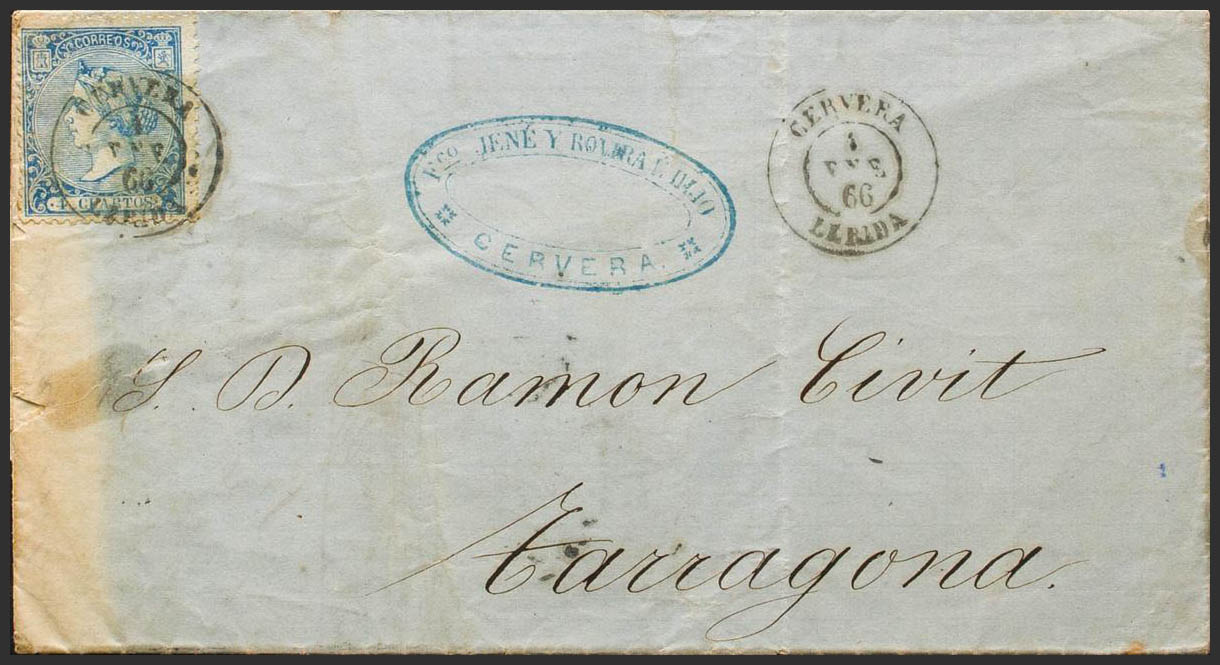 Y CORREOS
4 CUARTOS
CERVERA
1
ENE
66
Fco. JENÉ Y ROVIRA É HIJO
CERVERA.
CERVERA
1
ENE
66
LERIDA
S. D. Ramon Civit
Tarragona.